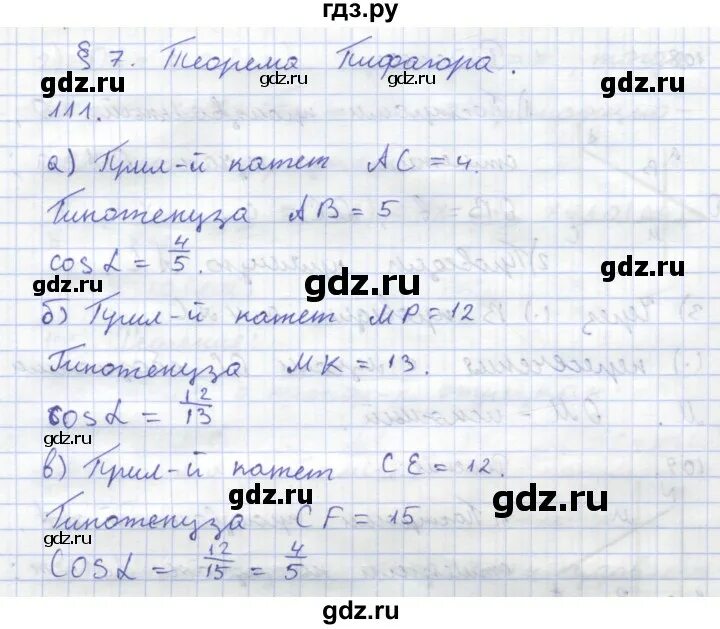 гдз.ру
§ 7. Теорема Пифагора.
111.
а) Прил-й катет AC = 4.
Гипотенуза AB = 5
cos α = 4/5.
б) Прил-й катет MP = 12
Гипотенуза MK = 13.
cos α = 12/13
в) Прил-й катет CE = 12.
Гипотенуза CF = 15
cos α = 12/15 = 4/5
gdz.ru
gdz.ru
gdz.ru
gdz.ru
gdz.ru
gdz.ru
gdz.ru
gdz.ru
gdz.ru
gdz.ru
gdz.ru
gdz.ru
gdz.ru